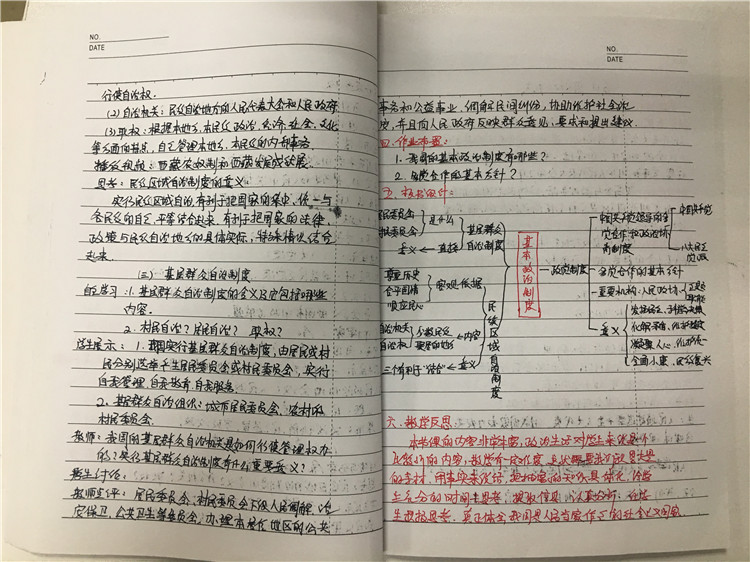 NO.
DATE
行使自治权.
(2)自治机关: 民族自治地方的人民代表大会和人民政府
(3)职权: 根据本地方、本民族政治、经济、社会、文化
等方面的特点, 自主管理本地方、本民族的内部事务.
播放视频: 西藏农奴制和西藏发展成就展.
思考: 民族区域自治制度的意义:
实行民族区域自治, 有利于把国家的集中、统一与
各民族的自主、平等结合起来, 有利于把国家的法律、
政策与民族自治地方的具体实际、特殊情况结合
起来.
(三) 基层群众自治制度
自主学习: 1. 基层群众自治制度的含义及它包括哪些
内容.
2. 村民自治? 居民自治? 职权?
学生展示: 1. 我国实行基层群众自治制度, 由居民或村
民分别选举产生居民委员会或村民委员会, 实行
自我管理、自我教育、自我服务.
2、基层群众自治组织: 城市居民委员会、农村的
村民委员会.
教师: 我国的基层群众自治机关是如何行使管理权力
的? 实行基层群众自治制度有什么重要意义?
学生讨论:
教师点评: 居民委员会、村民委员会下设人民调解、治
安保卫、公共卫生等委员会, 办理本居住地区的公共
NO.
DATE
事务和公益事业, 调解民间纠纷, 协助维护社会治
安, 并且向人民政府反映群众意见、要求和提出建议.
四、作业布置:
1. 我国的基本政治制度有哪些?
2. 多党合作的基本方针?
五、板书设计:
居民委员会
村民委员会
意义
直接
基层群众
自治制度
尊重历史
合乎国情
顺应民心
客观依据
自治机关
自治权
少数民族
聚居的地方
内容
三个有利于“结合”
意义
民族区域自治制度
基本政治制度
政党制度
中国共产党领导的多
党合作和政治协
商制度
中国共产党
八大民主
党派
多党合作的基本方针
重要机构: 人民政协
意义
全面小康、民族复兴
六、教学反思
本节课的内容非常丰富, 政治生活对学生来说是
的素材, 用事实来

生充分的时间去思考、提取信息、认真分析,
生积极思考, 真正体会我国是人民当家作主的社会主义国家.